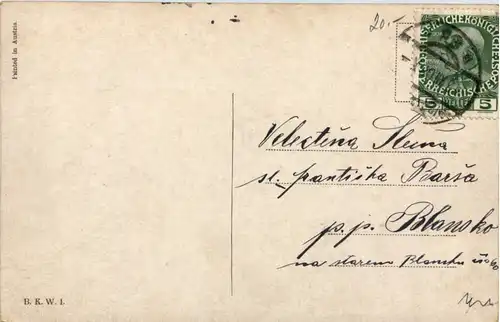 Printed in Austria.
20.-
KAISERLICHE KÖNIGLICHE
ÖSTERREICHISCHE POST
5 HELLER 5
Velectěna Slečna
sl. Františka Barša
p. p. Blansko
na starem Blansku
B. K. W. I.